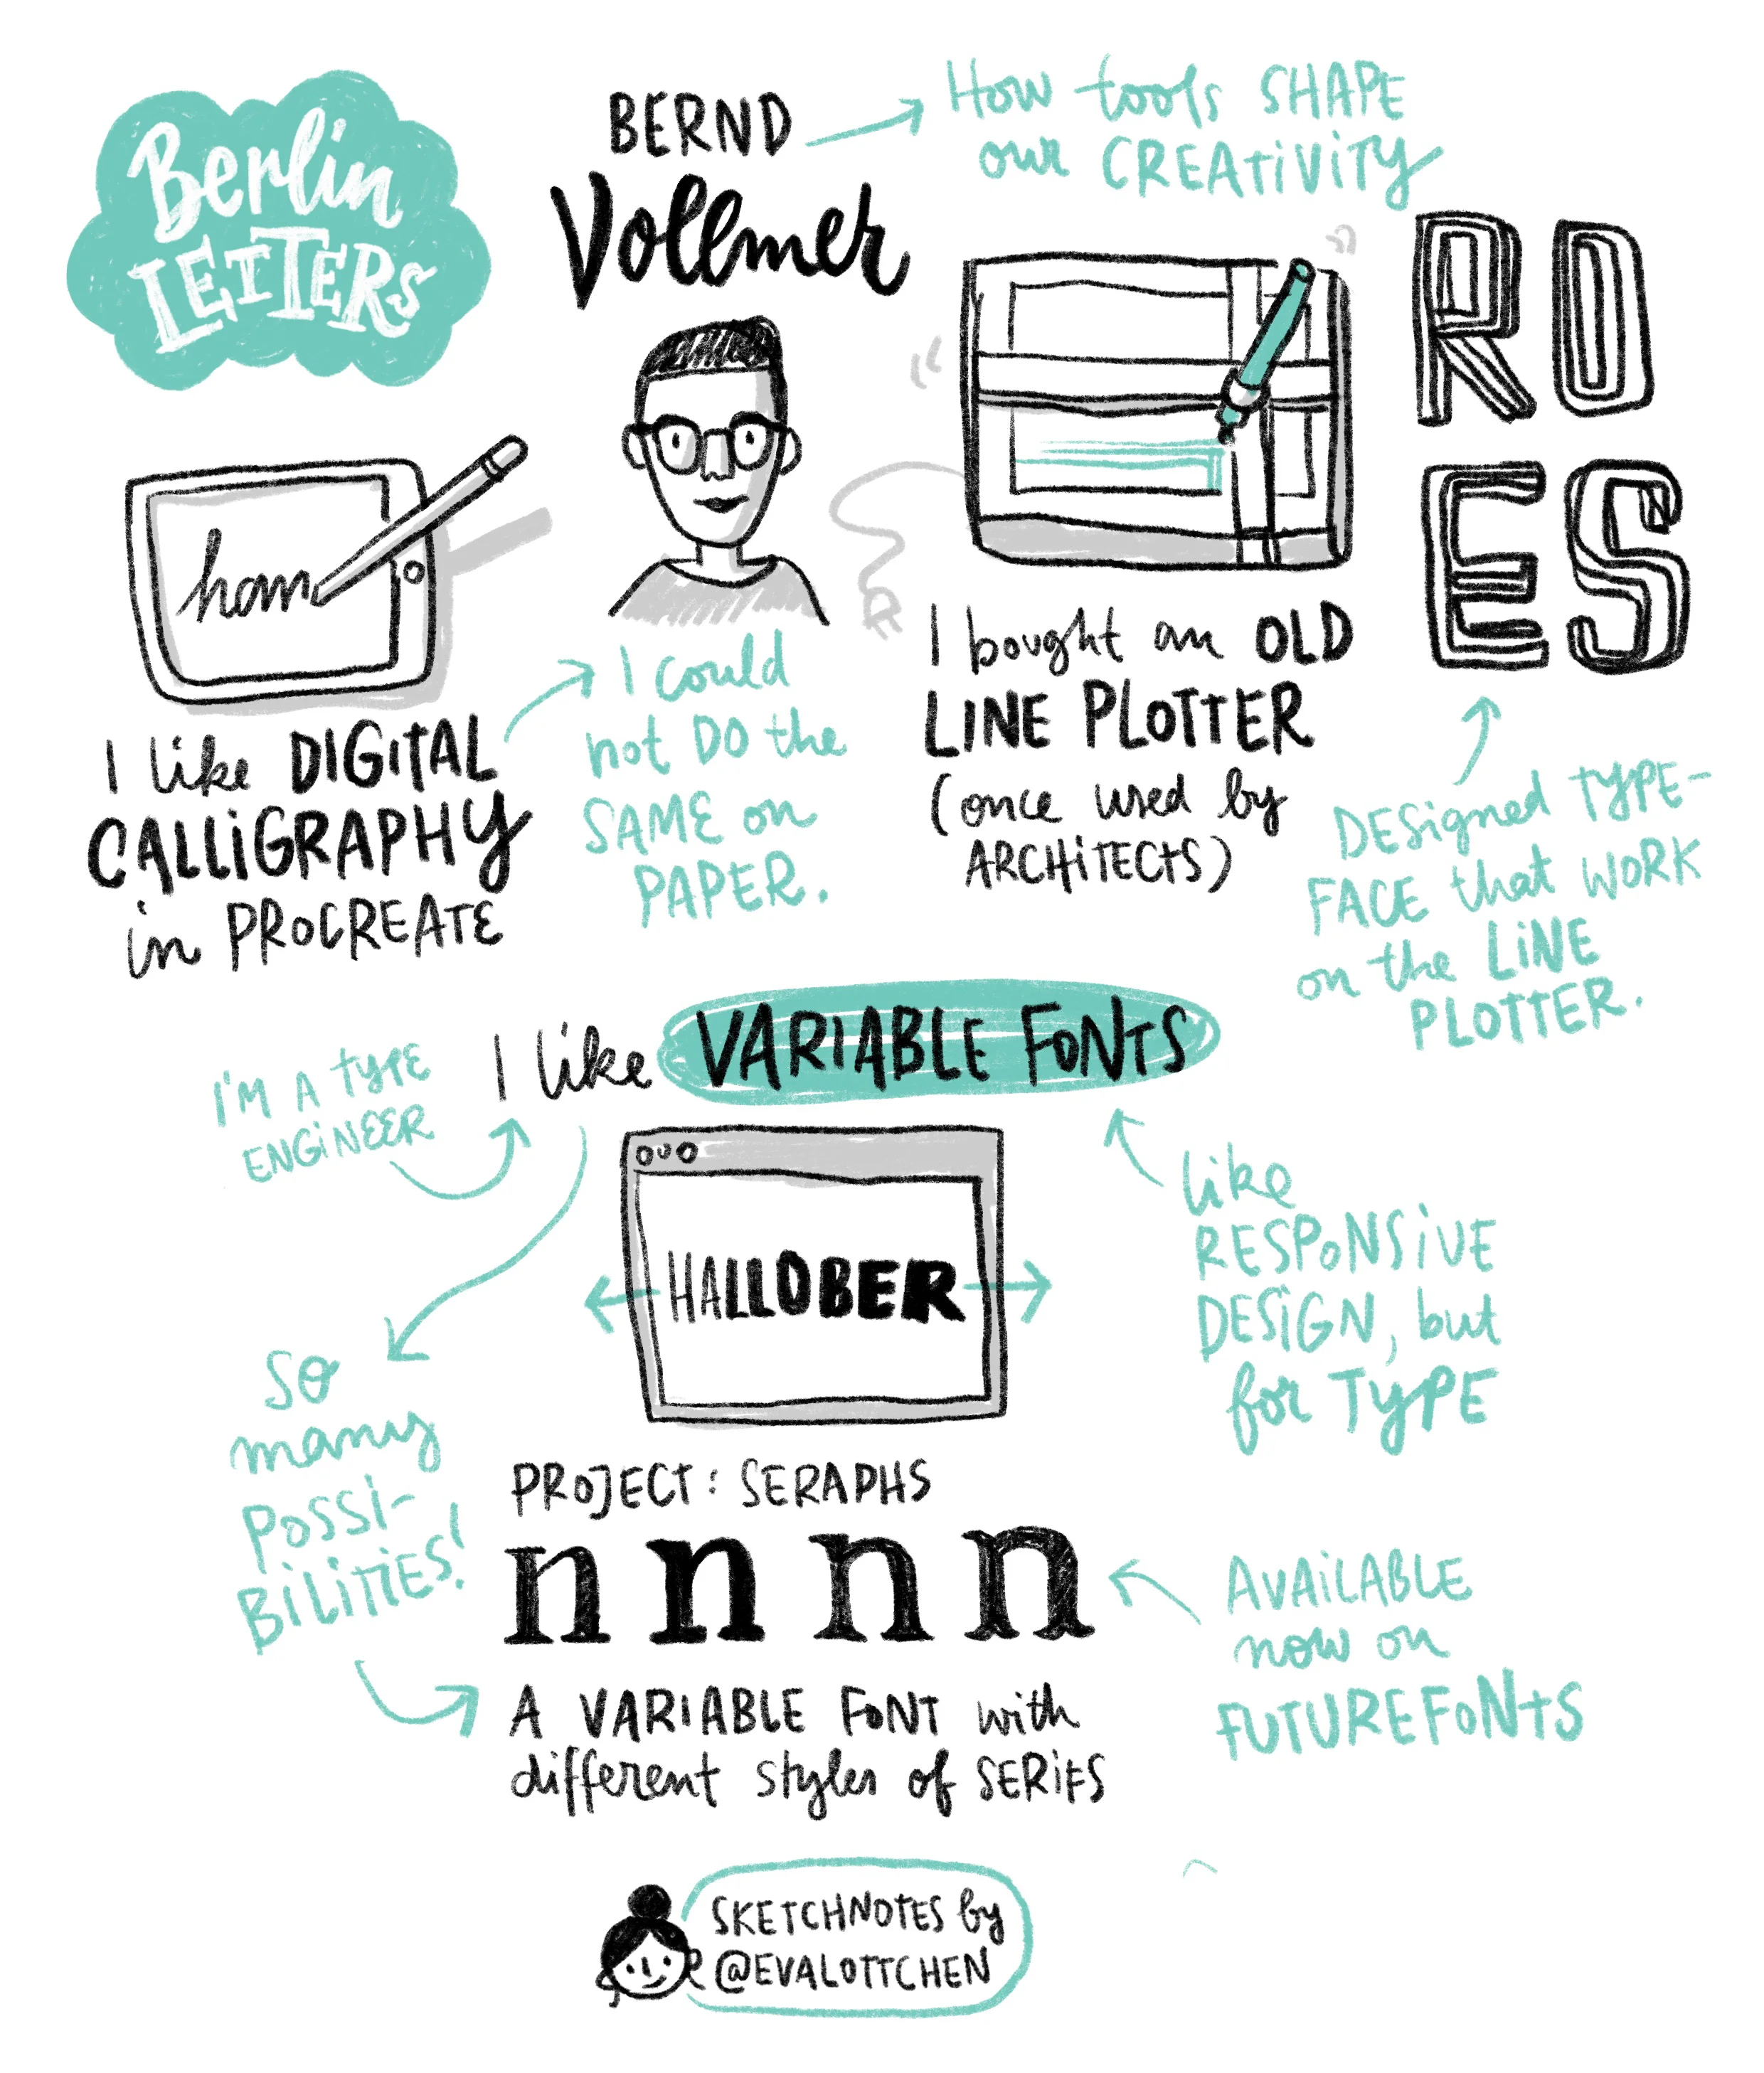 Berlin
LETTERS
BERND
Vollmer
How tools SHAPE
our CREATIVITY
ham
I like DIGITAL
CALLIGRAPHY
in PROCREATE
I could
not DO the
SAME on
PAPER.
I bought an OLD
LINE PLOTTER
(once used by
ARCHITECTS)
RO
ES
DESigned TYPE-
FACE that WORK
on the LINE
PLOTTER.
I'M A TYPE
ENGINEER
I like VARIABLE FONTS
HALLOBER
like
RESPONSIVE
DESIGN, but
for TYPE
SO
many
POSSI-
BILITIES!
PROJECT: SERAPHS
n n n n
AVAILABLE
now on
FUTUREFONTS
A VARIABLE FONT with
different styles of SERIFS
SKETCHNOTES by
@EVALOTTCHEN